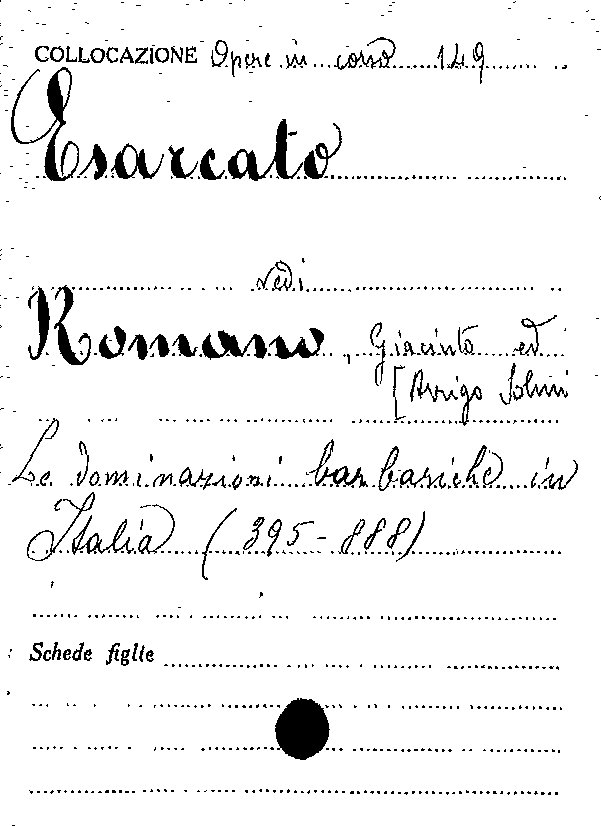 COLLOCAZIONE Opere in corso 149
Esarcato
vedi
Romano, Giacinto ed
[Arrigo Solmi
Le dominazioni barbariche in
Italia (395-888)
Schede figlie